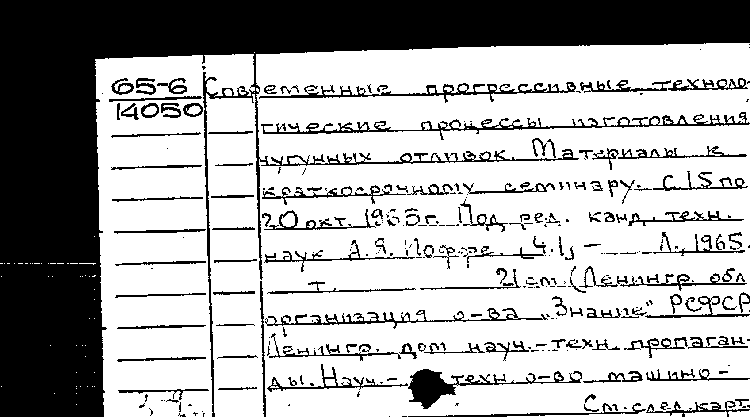 65-6 Современные прогрессивные техноло-
14050
гические процессы изготовления
чугунных отливок. Материалы к
краткосрочному семинару. С 15 по
20 окт. 1965 г. Под ред. канд. техн.
наук А.Я. Иоффе. [Ч.1] – Л., 1965.
т. 21 см. (Ленингр. обл.
организация о-ва „Знание" РСФСР
Ленингр. дом науч.-техн. пропаган-
ды. Науч.- техн. о-во машино-
См. след. карт.